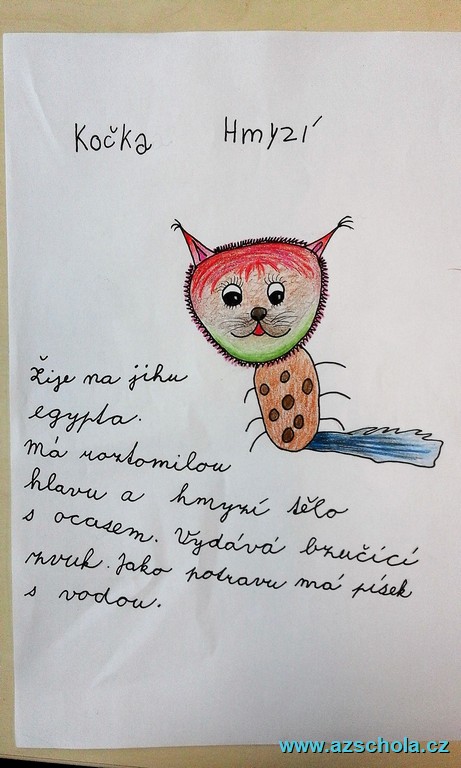 Kočka Hmyzí
Žije na jihu
egypta.
Má roztomilou
hlavu a hmyzí tělo
s ocasem. Vydává bzučící
zvuk. Jako potravu má písek
s vodou.
www.azschola.cz